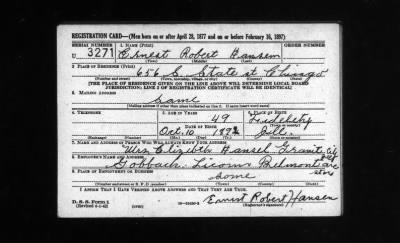 REGISTRATION CARD—(Men born on or after April 28, 1877 and on or before February 16, 1897)
SERIAL NUMBER 1. NAME (Print) ORDER NUMBER
U 3271 Ernest Robert Hansen
(First) (Middle) (Last)
2. PLACE OF RESIDENCE (Print)
656 S. State st Chicago
(Number and street) (Town, township, village, or city) (County) (State)
[THE PLACE OF RESIDENCE GIVEN ON THE LINE ABOVE WILL DETERMINE LOCAL BOARD
JURISDICTION; LINE 2 OF REGISTRATION CERTIFICATE WILL BE IDENTICAL]
3. MAILING ADDRESS
Same
(Mailing address if other than place indicated on line 2. If same insert word same)
4. TELEPHONE 5. AGE IN YEARS 6. PLACE OF BIRTH
49
DATE OF BIRTH (Town or county)
Oct. 10 1892 Ill.
(Exchange) (Number) (Mo.) (Day) (Yr.) (State or country)
7. NAME AND ADDRESS OF PERSON WHO WILL ALWAYS KNOW YOUR ADDRESS
Mrs Granite City
8. EMPLOYER'S NAME AND ADDRESS
Belmont ave
store
9. PLACE OF EMPLOYMENT OR BUSINESS
Some
(Number and street or R. F. D. number) (Town) (County) (State)
I AFFIRM THAT I HAVE VERIFIED ABOVE ANSWERS AND THAT THEY ARE TRUE.
D. S. S. Form 1
(Revised 4-1-42) Ernest Robert Hansen
(Registrant's signature)